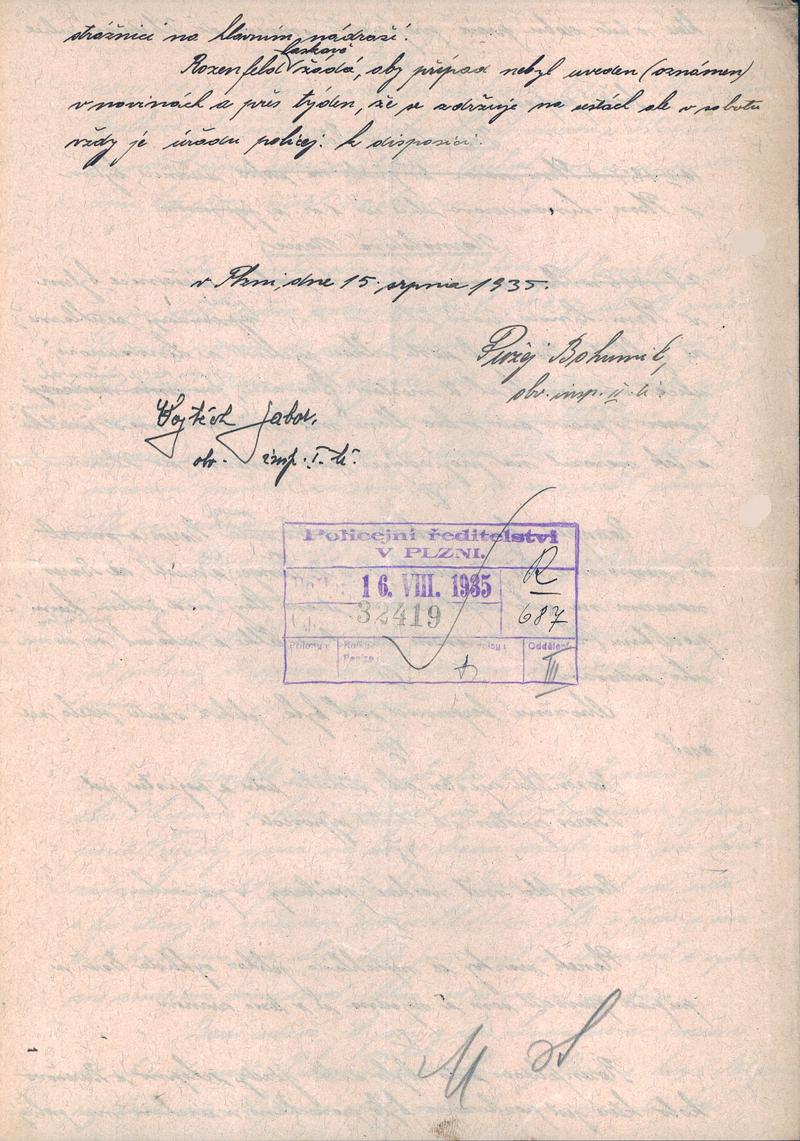 strážnici na hlavním nádraží.
Rozenfeld laskavě žádá, aby případ nebyl uveden (oznámen)
v novinách a přes týden, že se zdržuje na cestách ale v sobotu
vždy je úřadu policej. k disposici.
v Plzni, dne 15. srpnia 1935.
Bohumil,
obv. insp. II. tř.
Vojtěch Gabor.
obv. insp. I. tř.
Policejní ředitelství
V PLZNI.
16. VIII. 1935
R
32419
687
Přílohy:
Oddělení
III
M